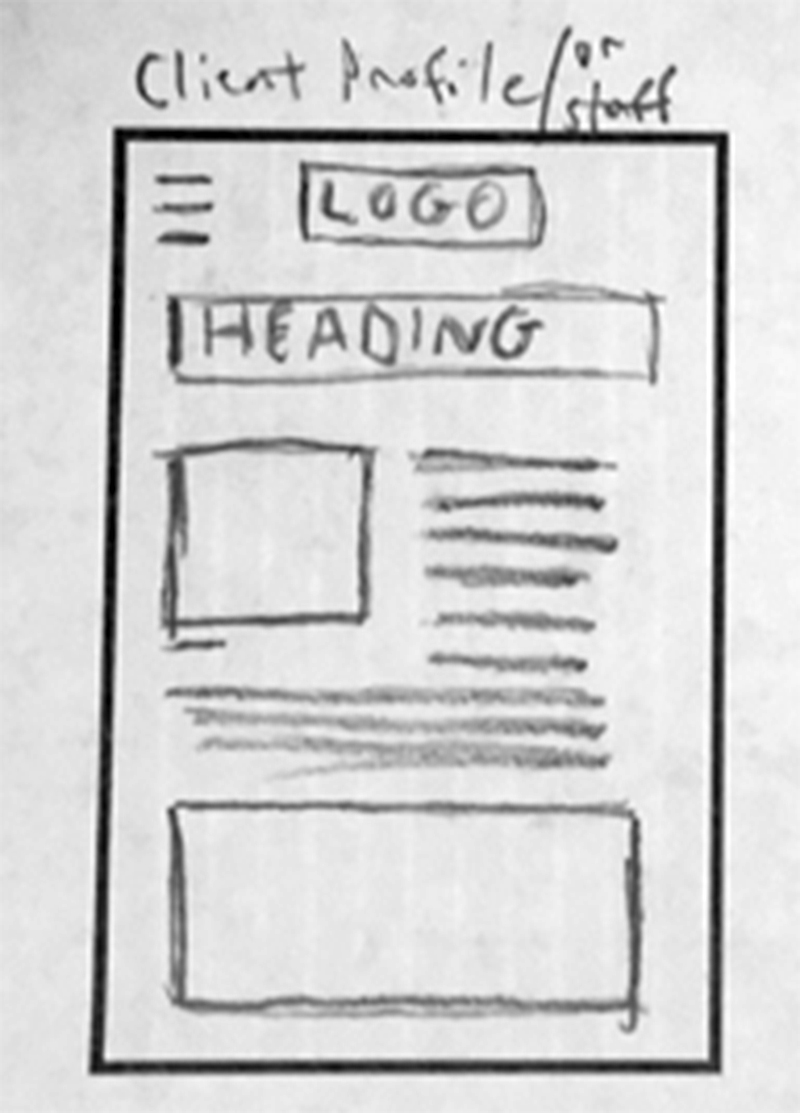 Client Profile/or
staff
LOGO
HEADING